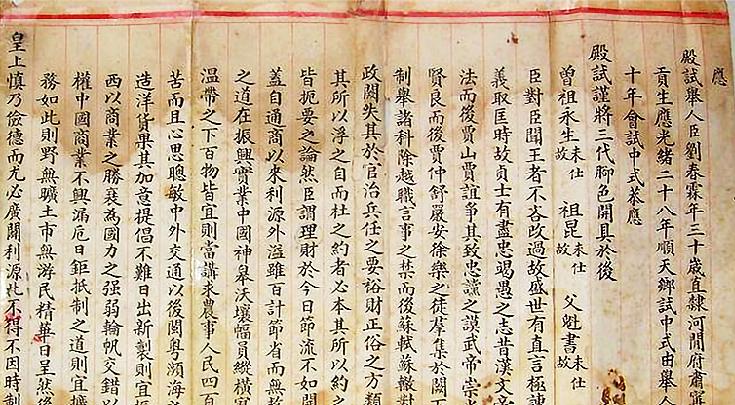 應
殿試舉人臣劉春霖年三十歲直隸河間府肅寧
貢生應光緒二十八年順天鄉試中式由舉人
十年會試中式恭應
殿試謹將三代腳色開具於後
曾祖永生未仕故 祖昆未仕故 父魁書未仕故
臣對臣聞王者不吝改過故盛世有直言極諫
義取匡時故貞士有盡忠竭愚之志昔漢文帝
法而後賈山賈誼爭其致忠讜之謨武帝崇
賢良而後賈仲舒嚴安徐樂之徒羣集於闕下
制舉諸科除越職言事之禁而後蘇軾蘇轍對
政闕失其於官治兵任之要裕財正俗之方類
其所以浮之自而杜之約者必本其所以約之
皆扼要之論然臣謂理財於今日節流不如開
蓋自通商以來利源外溢雖百計節省而無救
之道在振興實業中國神皋沃壤幅員縱橫
溫帶之下百物皆宜則當講求農事人民四百
苦而且心思聰敏中外交通以後閩粵瀕海
造洋貨果其加意提倡不難日出新製則宜振
西以商業之勝衰為國力之强弱輪帆交錯以
權中國商業不興漏卮日鉅抵制之道則宜擴
務如此則野無曠土市無游民精華日呈然後
皇上慎乃儉德而尤必廣開利源此不得不因時制